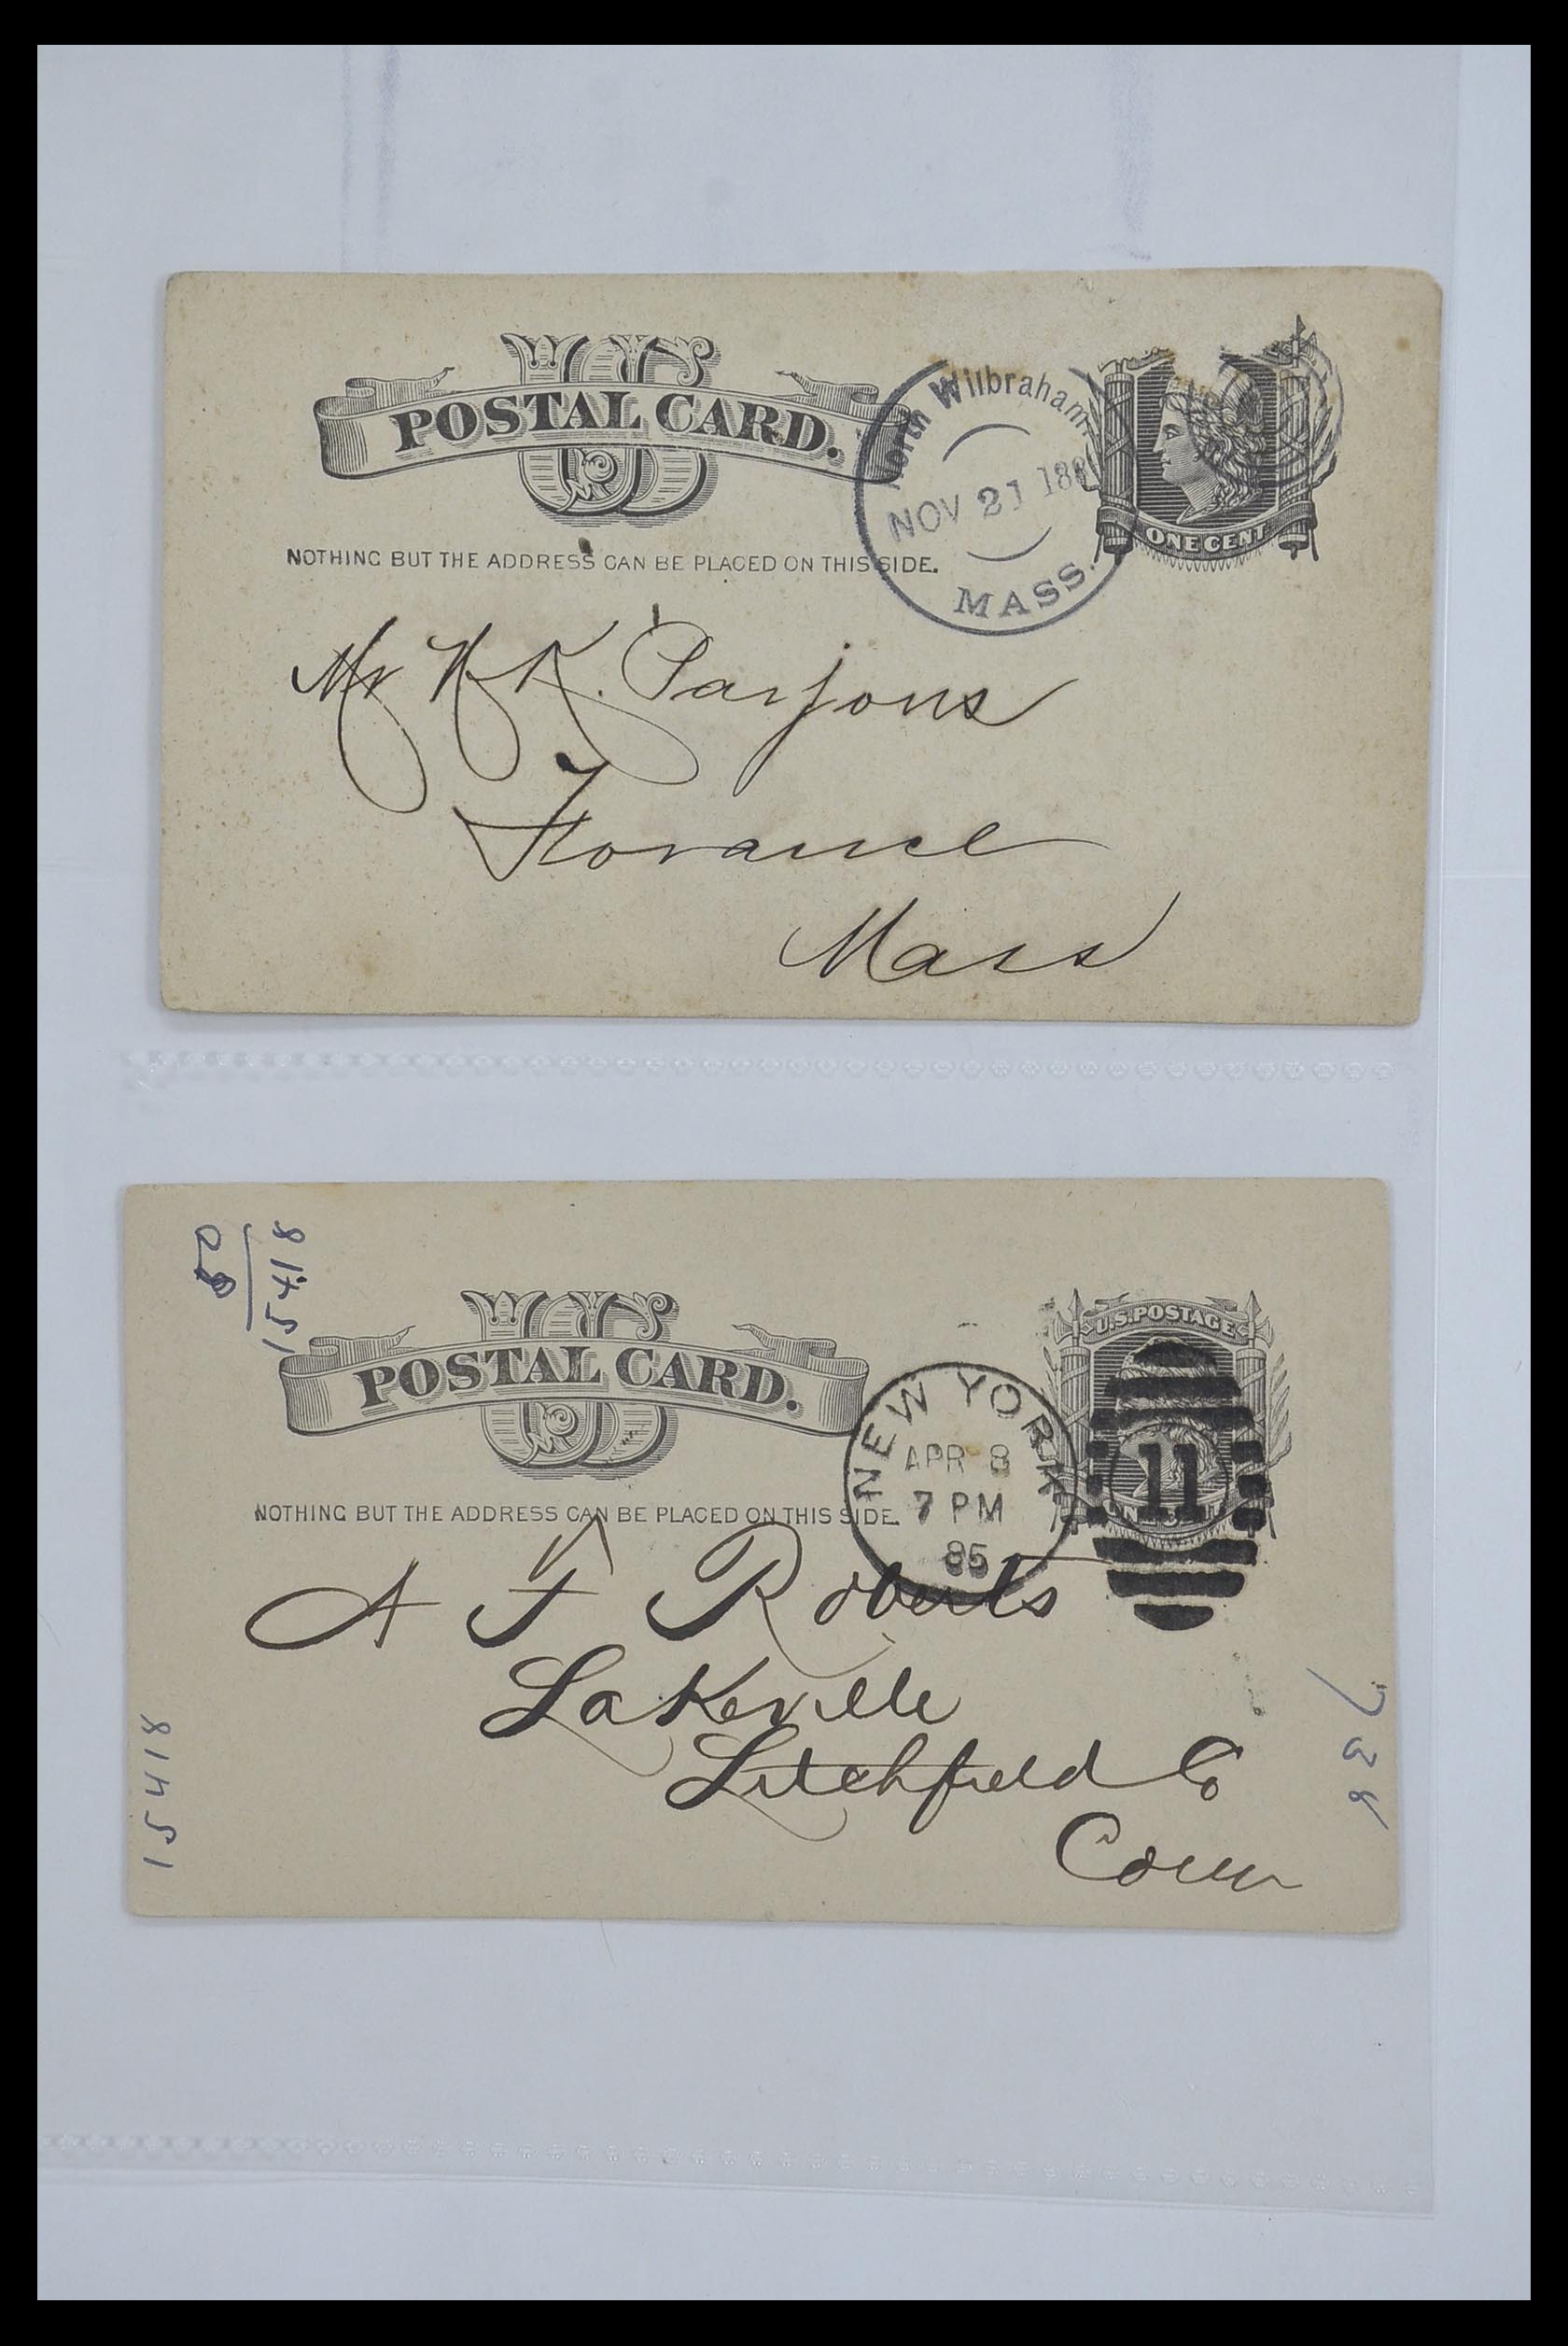 US
POSTAL CARD.
NOTHING BUT THE ADDRESS CAN BE PLACED ON THIS SIDE.
North Wilbraham,
NOV 21 188
MASS.
ONE CENT
Mr Parsons
Florance
Mass
15418
US
POSTAL CARD.
NOTHING BUT THE ADDRESS CAN BE PLACED ON THIS SIDE.
NEW YORK
APR 8
7 PM
85
U.S. POSTAGE
11
A F Roberts
Lakeville
Litchfield Co
Conn
15418